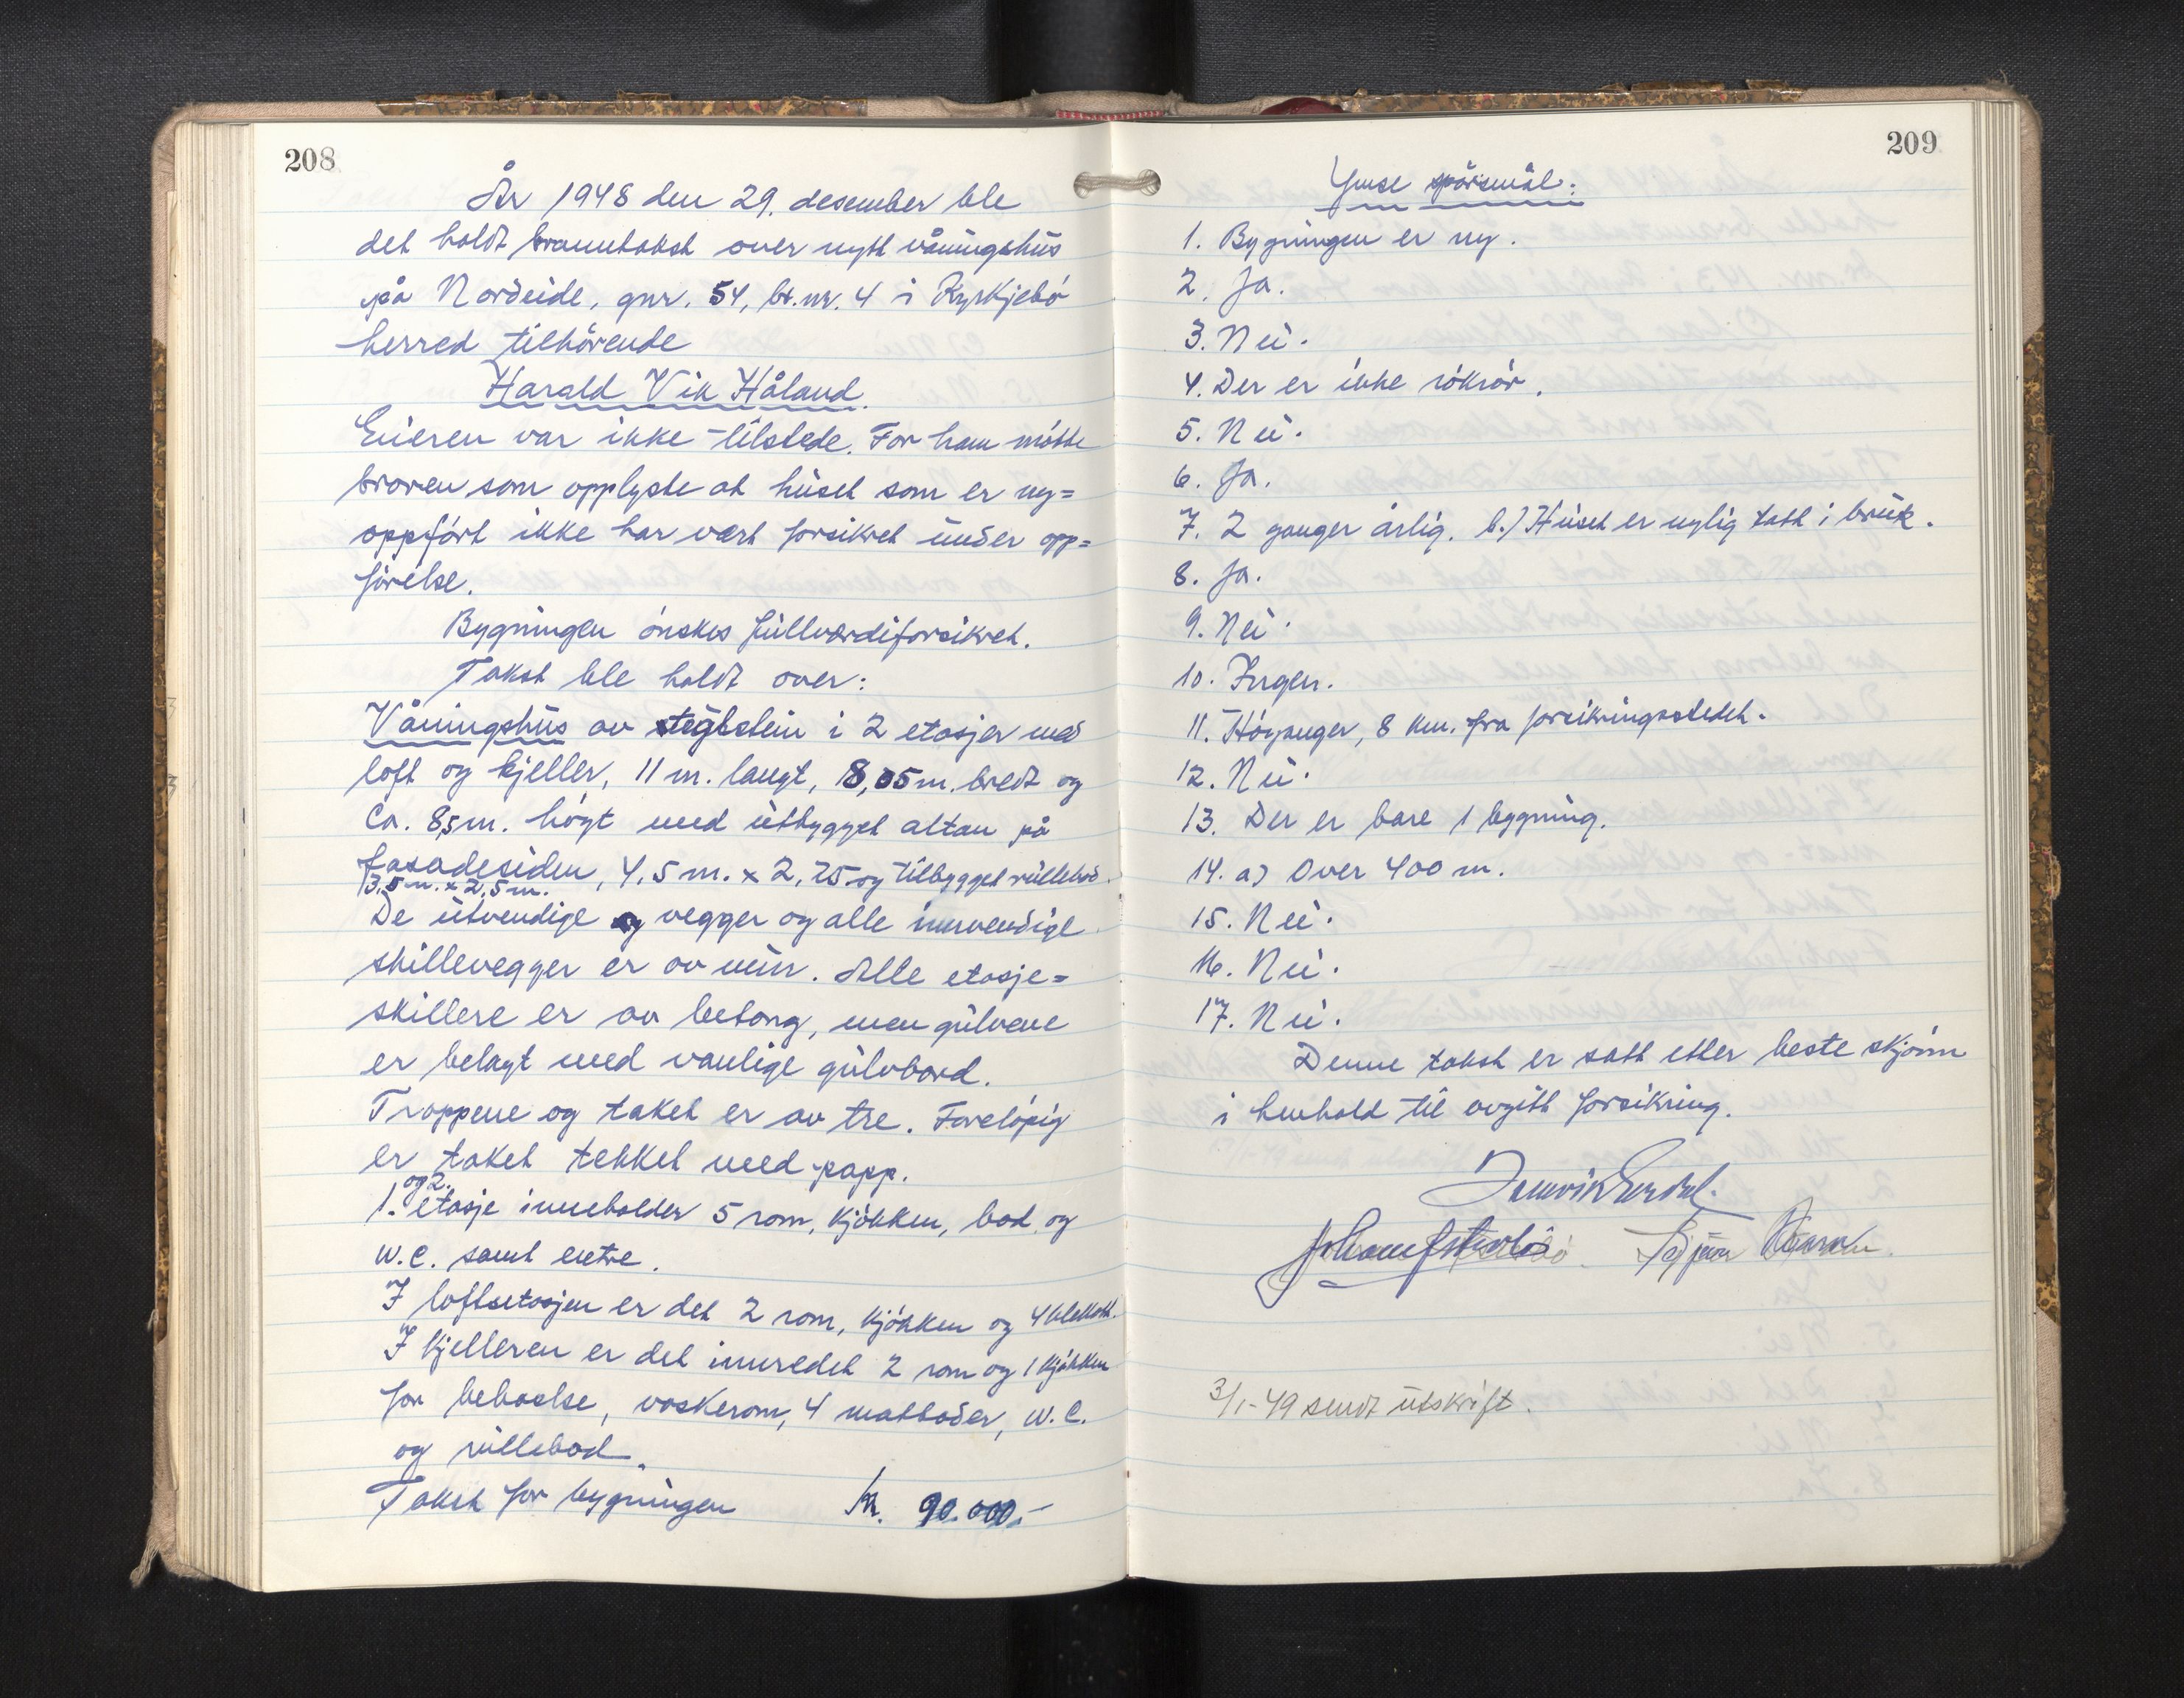 208
År 1948 den 29. desember ble
det holdt branntakst over nytt våningshus
på Nordeide, gnr. 54, br.nr. 4 i Kyrkjebö
herred tilhörende
Harald Vik Håland.
Eieren var ikke tilstede. For ham mötte
broren som opplyste at huset som er ny=
oppfört ikke har vært forsikret under opp=
förelse.
Bygningen önskes fullverdiforsikret.
Takst ble holdt over:
Våningshus av teglstein i 2 etasjer med
loft og kjeller, 11 m. langt, 8,05 m. bredt og
Ca. 8,5 m. höyt med utbygget altan på
fasadesiden, 4,5 m. x 2,25 og tilbygget rullebod.
3,5 m. x 2,5 m.
De utvendige vegger og alle innvendige
skillevegger er av mur. Alle etasje=
skillere er av betong, men gulvene
er belagt med vanlige gulvbord.
Trappene og taket er av tre. Forelöpig
er taket tekket med papp.
1. og 2. etasje inneholder 5 rom, kjökken, bad og
W.C. samt entre.
I loftsetasjen er det 2 rom, kjökken og 4 klekott.
I kjelleren er det innredet 2 rom og 1 kjökken
for beboelse, vaskerom, 4 matboder, W.C.
og rullebod.
Takst for bygningen kr. 90.000.-
209
Ymse spörsmål:
1. Bygningen er ny.
2. Ja.
3. Nei.
4. Der er ikke rökrör.
5. Nei.
6. Ja.
7. 2 ganger årlig. b.) Huset er nylig tatt i bruk.
8. Ja.
9. Nei.
10. Ingen.
11. Höyanger, 8 km. fra forsikringsstedet.
12. Nei.
13. Der er bare 1 bygning.
14. a) Over 400 m.
15. Nei.
16. Nei.
17. Nei.
Denne takst er satt etter beste skjönn
i henhold til avgitt forsikring.
3/1-49 sendt utskrift.